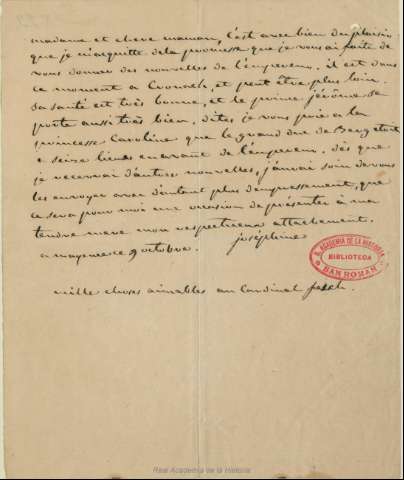 madame et chere maman, c'est avec bien du plaisir
que je m'acquitte de la promesse que je vous ai faite de
vous donner des nouvelles de l'empereur. il est dans
ce moment a Cronach, et peut être plus loin.
sa santé est très bonne, et le prince jérôme se
porte aussi très bien. dites je vous prie a la
princesse Caroline que le grand duc de Berg etoit
a seize lieues en avant de l'empereur. dès que
je recevrai d'autres nouvelles, j'aurai soin de vous
les envoyer avec d'autant plus d'empressement, que
ce sera pour moi une occasion de présenter à ma
tendre mere mon respectueux attachement.
joséphine
a mayence ce 9 octobre.
mille choses aimables au Cardinal fesch.
R. ACADEMIA DE LA HISTORIA
BIBLIOTECA
SAN ROMAN
Real Academia de la Historia